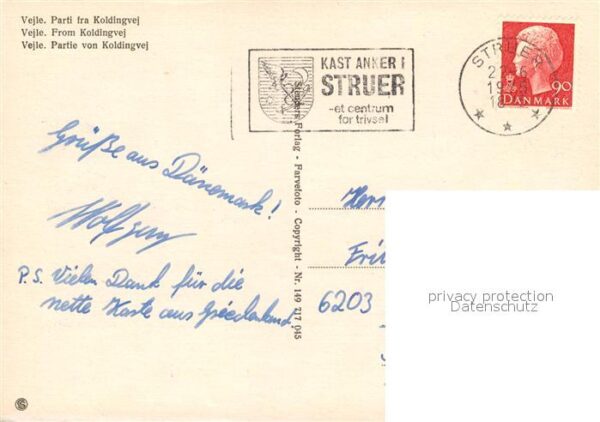 Vejle. Parti fra Koldingvej
Vejle. From Koldingvej
Vejle. Partie von Koldingvej
KAST ANKER I
STRUER
-et centrum
for trivsel
STRUER
1975
90
DANMARK
Grüße aus Dänemark!
Wolfgang
P.S. Vielen Dank für die
nette Karte aus Griechenland.
Stenders Forlag - Farvefoto - Copyright - Nr. 149 217 045
Herr
6203
privacy protection
Datenschutz